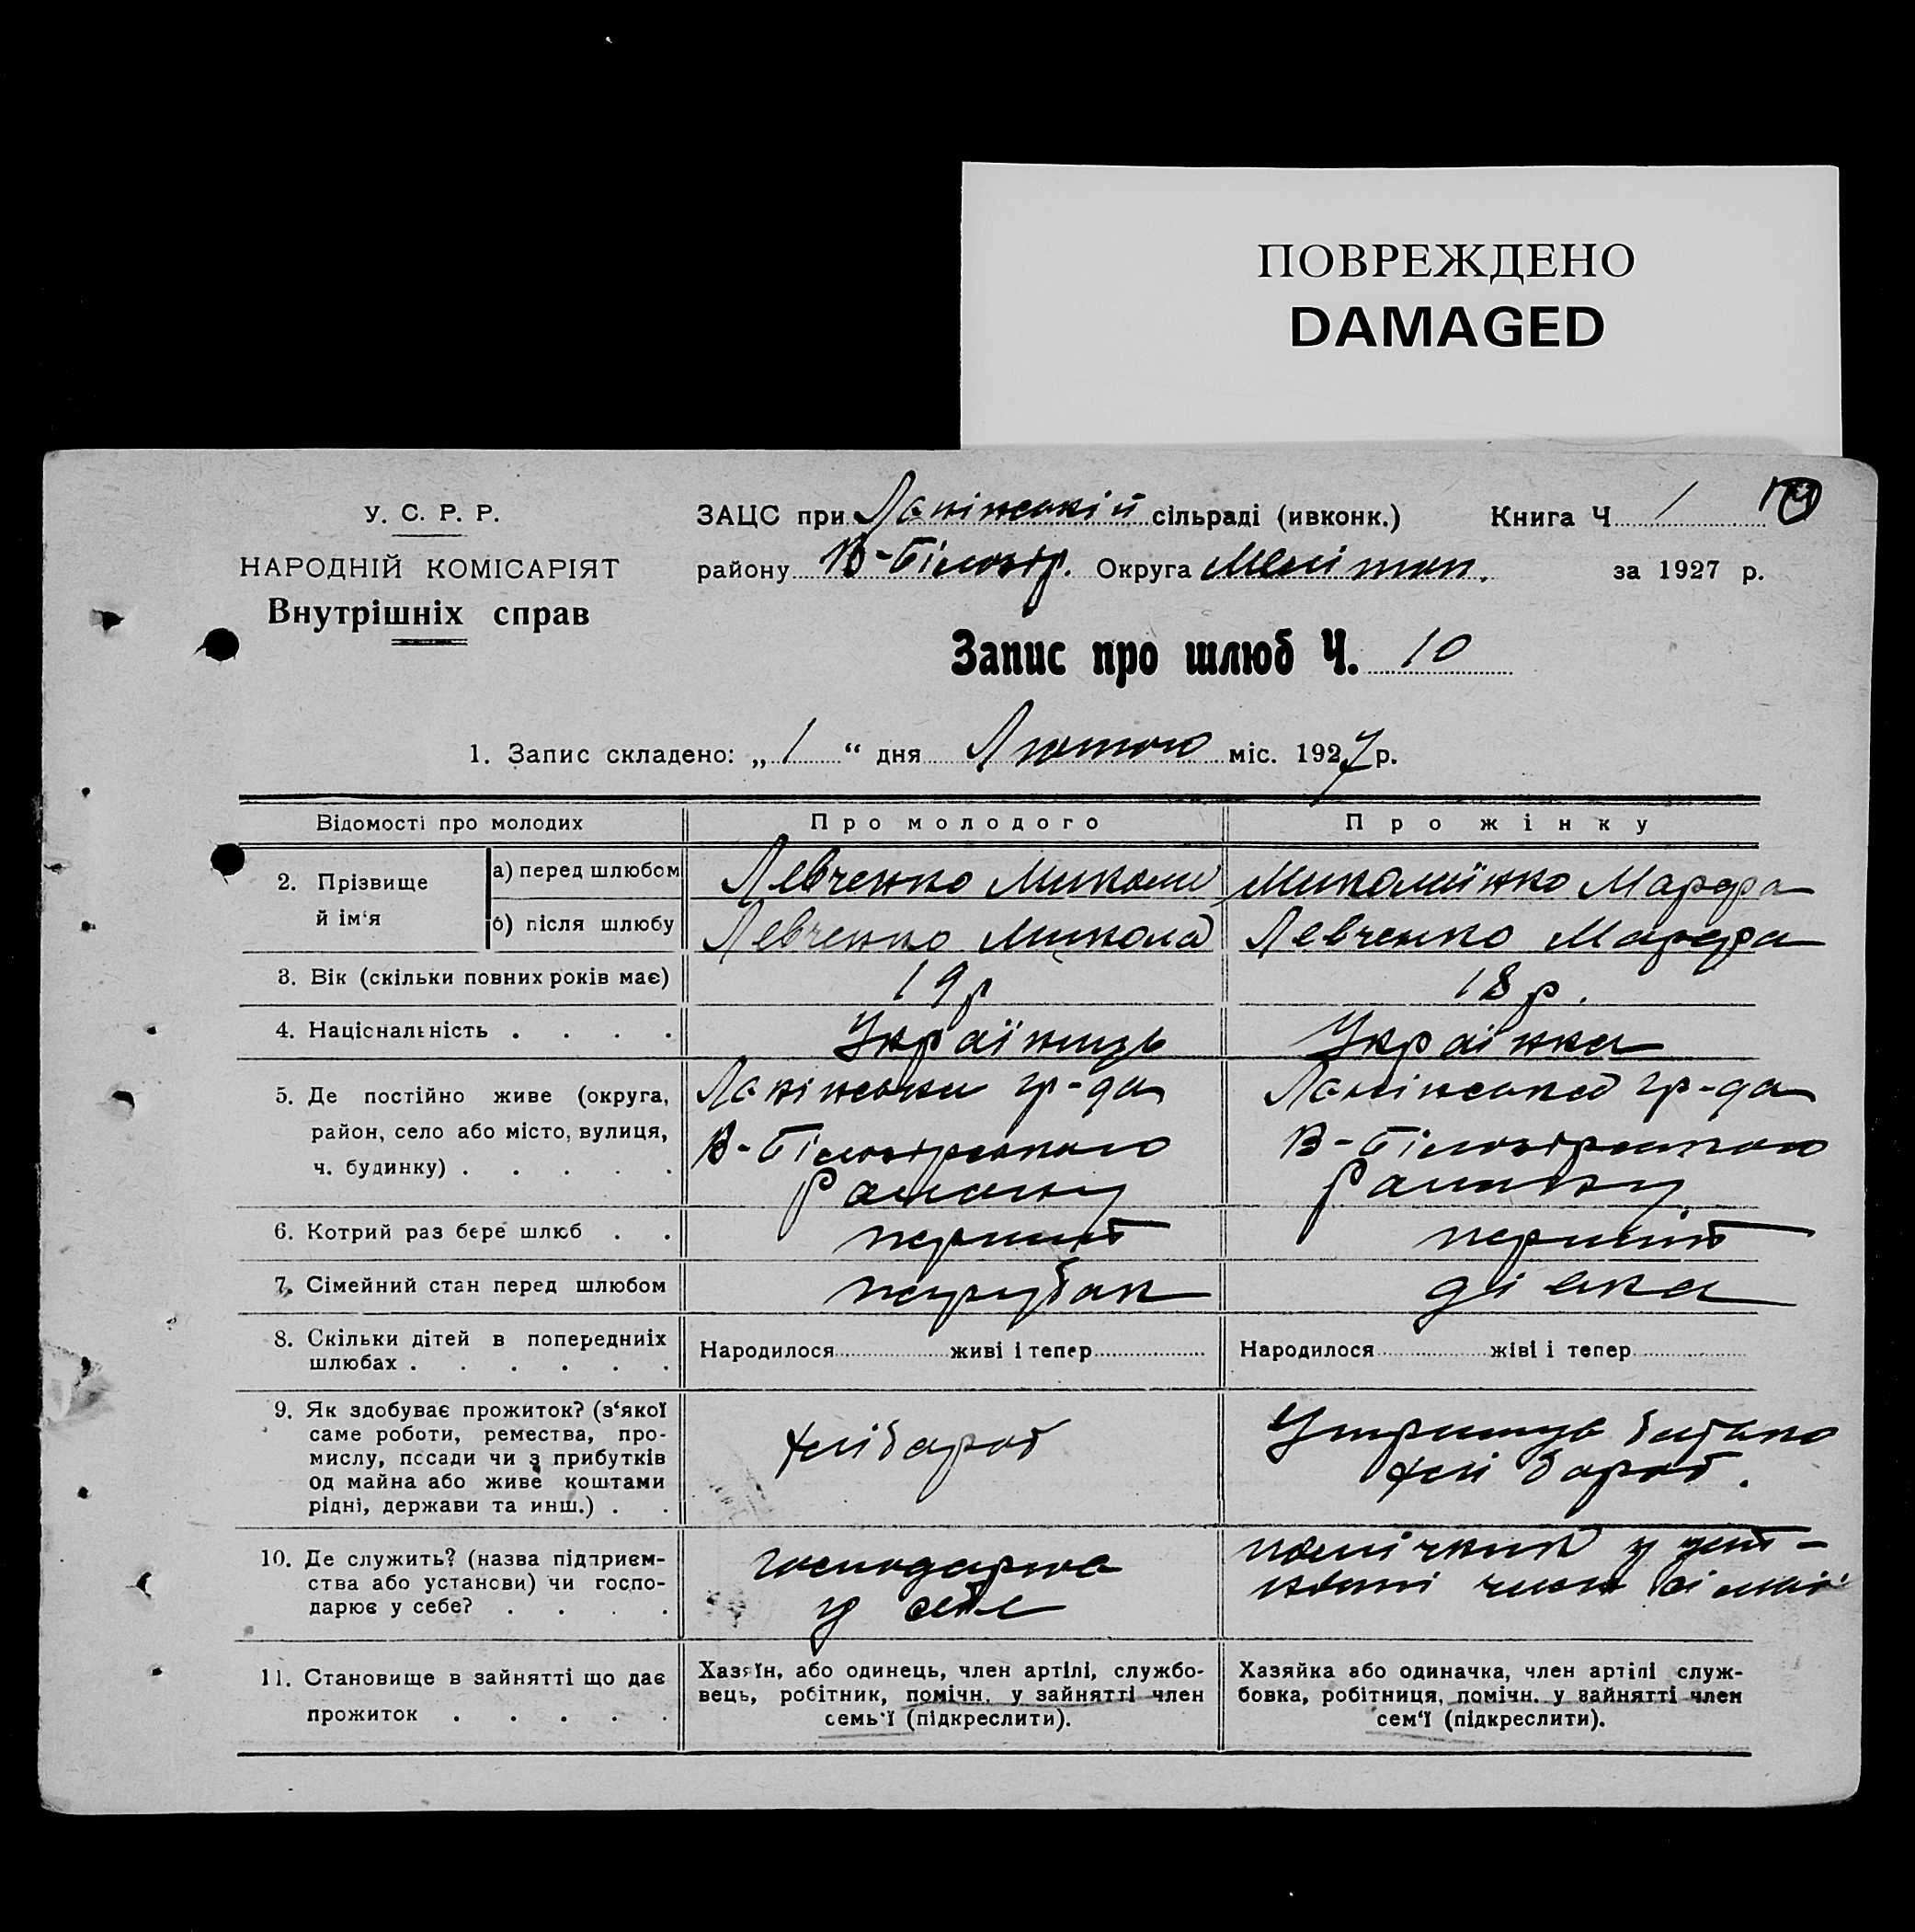 ПОВРЕЖДЕНО
DAMAGED
У. С. Р. Р.
НАРОДНІЙ КОМІСАРІЯТ
Внутрішніх справ
ЗАЦС при сільраді (ивконк.) Книга Ч 1
району В-Білозір. Округа Мелітоп. за 1927 р.
Запис про шлюб Ч. 10
1. Запис складено: „ 1 “ дня Лютого міс. 1927 р.
Відомості про молодих
Про молодого
Про жінку
2. Прізвище й ім‘я
а) перед шлюбом
Левченко Микола
Миколаїнко Марфа
б) після шлюбу
Левченко Микола
Левченко Марфа
3. Вік (скільки повних років має)
19 р
18 р.
4. Національність . . . .
Українць
Українка
5. Де постійно живе (округа,
район, село або місто, вулиця,
ч. будинку) . . . . .
гр-да
В-Білозірського
Району
гр-да
В-Білозірського
Району
6. Котрий раз бере шлюб . .
перший
перший
7. Сімейний стан перед шлюбом
парубак
дівка
8. Скільки дітей в попередниіх
шлюбах . . . . . .
Народилося живі і тепер
Народилося жіві і тепер
9. Як здобуває прожиток? (з‘якої
саме роботи, ремества, про-
мислу, посади чи з прибутків
од майна або живе коштами
рідні, держави та инш.) . .
хлібароб
батько
хлібароб.
10. Де служить? (назва підприєм-
ства або установи) чи госпо-
дарює у себе? . . . .
господарює
у себе
помічний у
член сімї
11. Становище в зайнятті що дає
прожиток . . . . .
Хазяїн, або одинець, член артілі, службо-
вець, робітник, помічн. у зайнятті член
семь‘ї (підкреслити).
Хазяйка або одиначка, член артілі служ-
бовка, робітниця, помічн. у зайнятті член
сем‘ї (підкреслити).